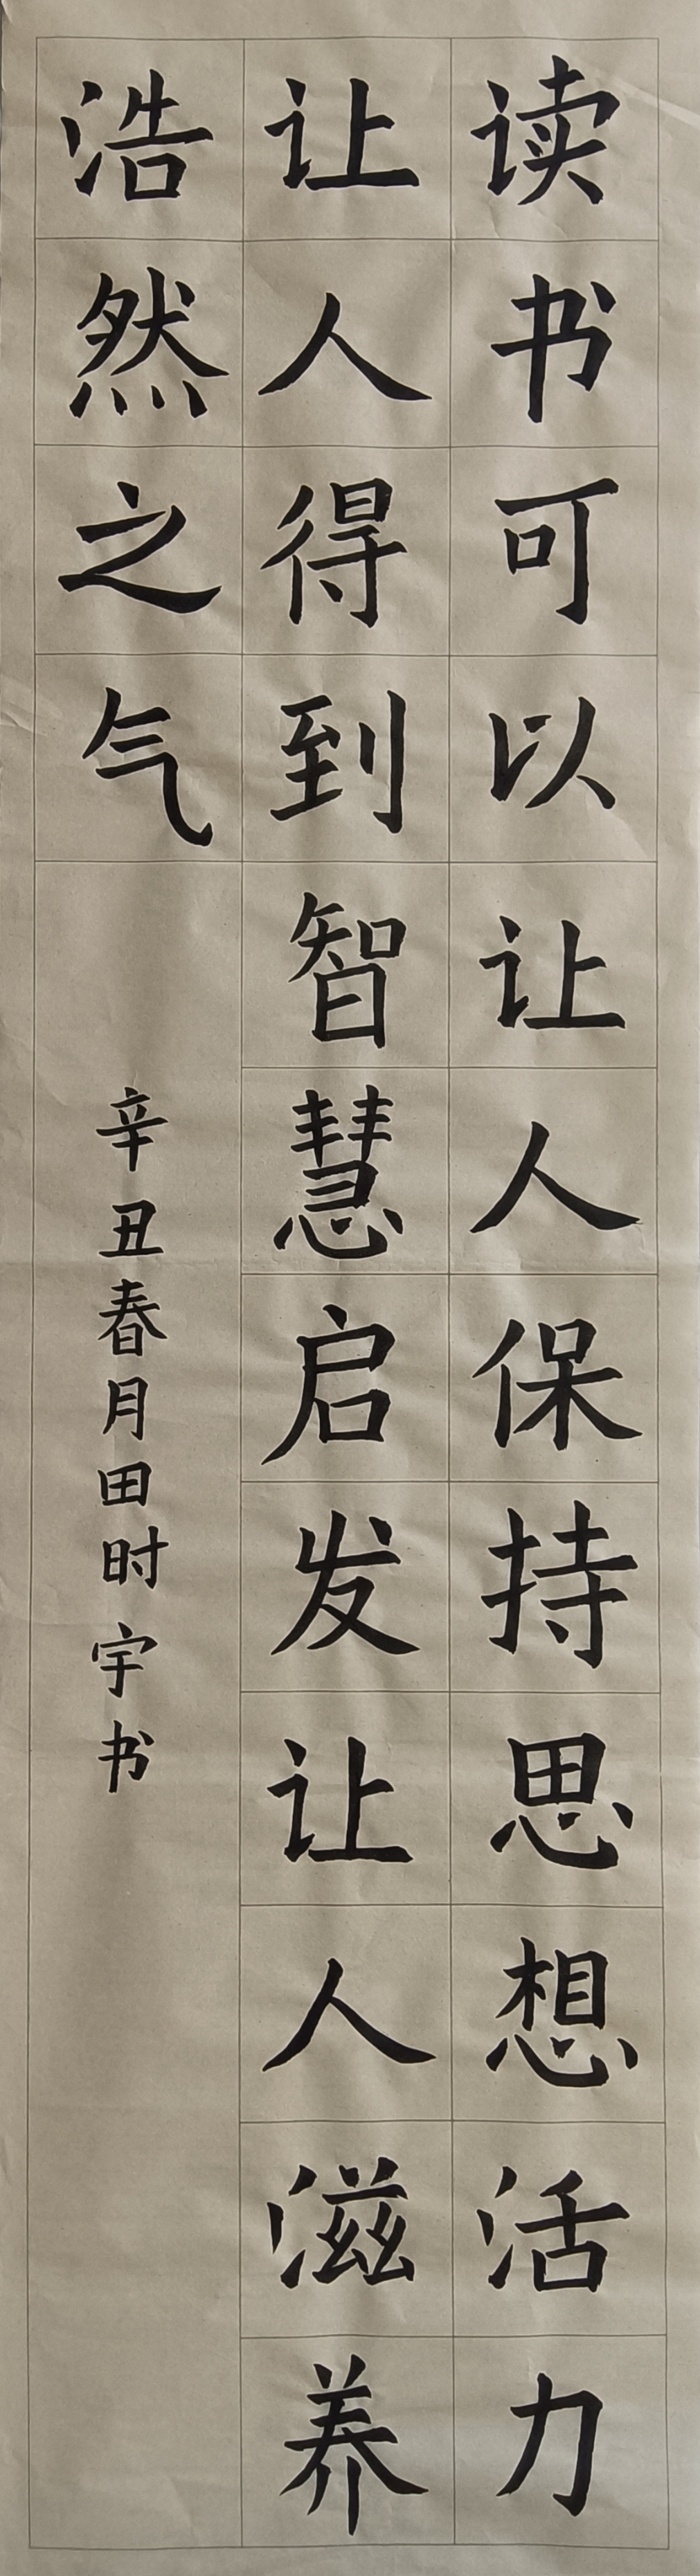 读书可以让人保持思想活力
让人得到智慧启发让人滋养
浩然之气
辛丑春月田时宇书